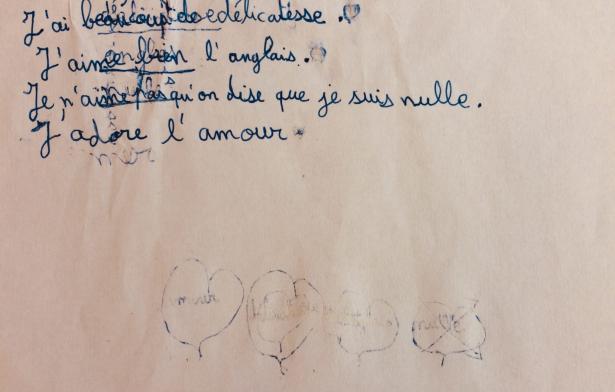 J'ai beaucoup de délicatesse.
J'aime bien l'anglais.
Je n'aime pas qu'on dise que je suis nulle.
J'adore l'amour
nulle